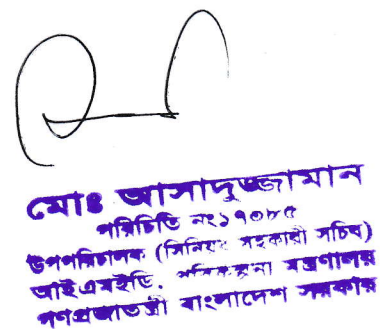 মোঃ আসাদুজ্জামান
পরিচিতি নং১৭০৮৫
উপপরিচালক (সিনিয়র সহকারী সচিব)
আইএমইডি, পরিকল্পনা মন্ত্রণালয়
গণপ্রজাতন্ত্রী বাংলাদেশ সরকার